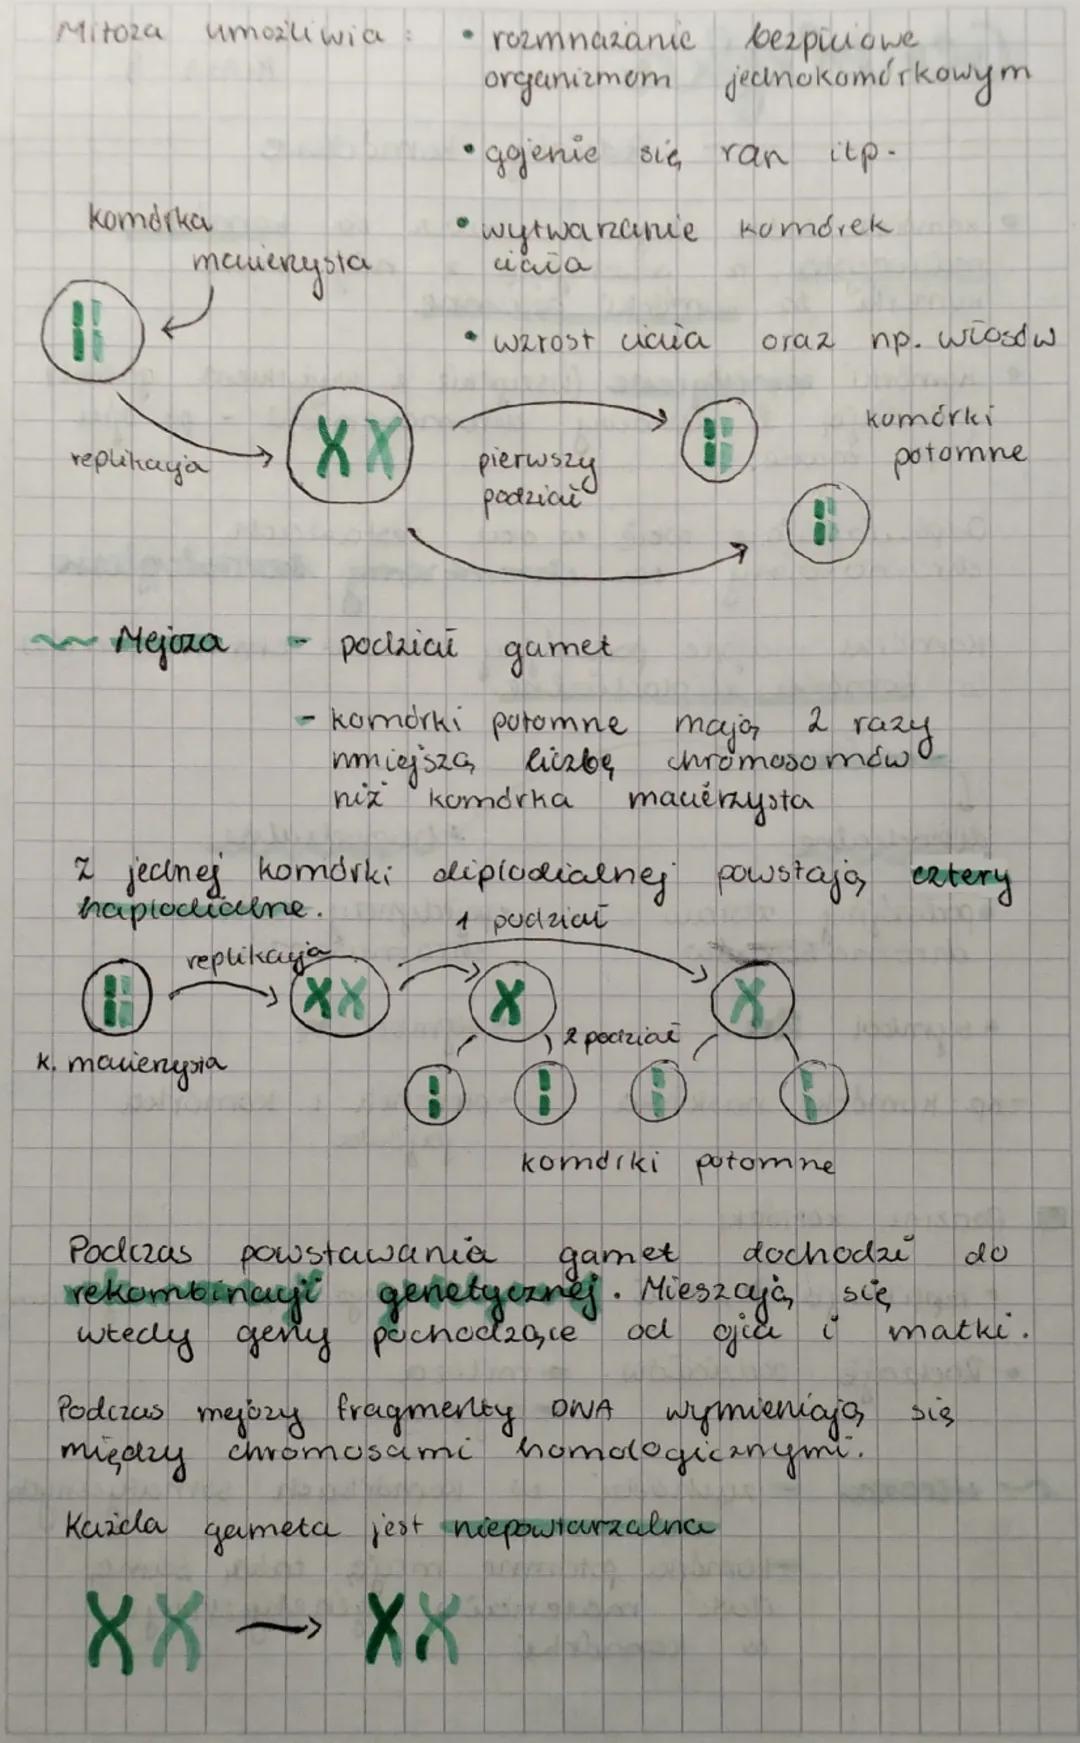 Mitoza umożliwia : • rozmnażanie bezpłciowe
organizmom jednokomórkowym
• gojenie się ran itp.
• wytwarzanie komórek
ciała
• wzrost ciała oraz np. włosów
komórka
macierzysta
replikacja
pierwszy
podział
komórki
potomne
Mejoza - podział gamet
- komórki potomne mają 2 razy
mniejszą liczbę chromosomów
niż komórka macierzysta
Z jednej komórki diploidialnej powstają cztery
haploidialne.
1 podział
replikacja
2 podział
k. macierzysta
komórki potomne
Podczas powstawania gamet dochodzi do
rekombinacji genetycznej. Mieszają się
wtedy geny pochodzące od ojca i matki.
Podczas mejozy fragmenty DNA wymieniają się
między chromosami homologicznymi.
Każda gameta jest niepowtarzalna